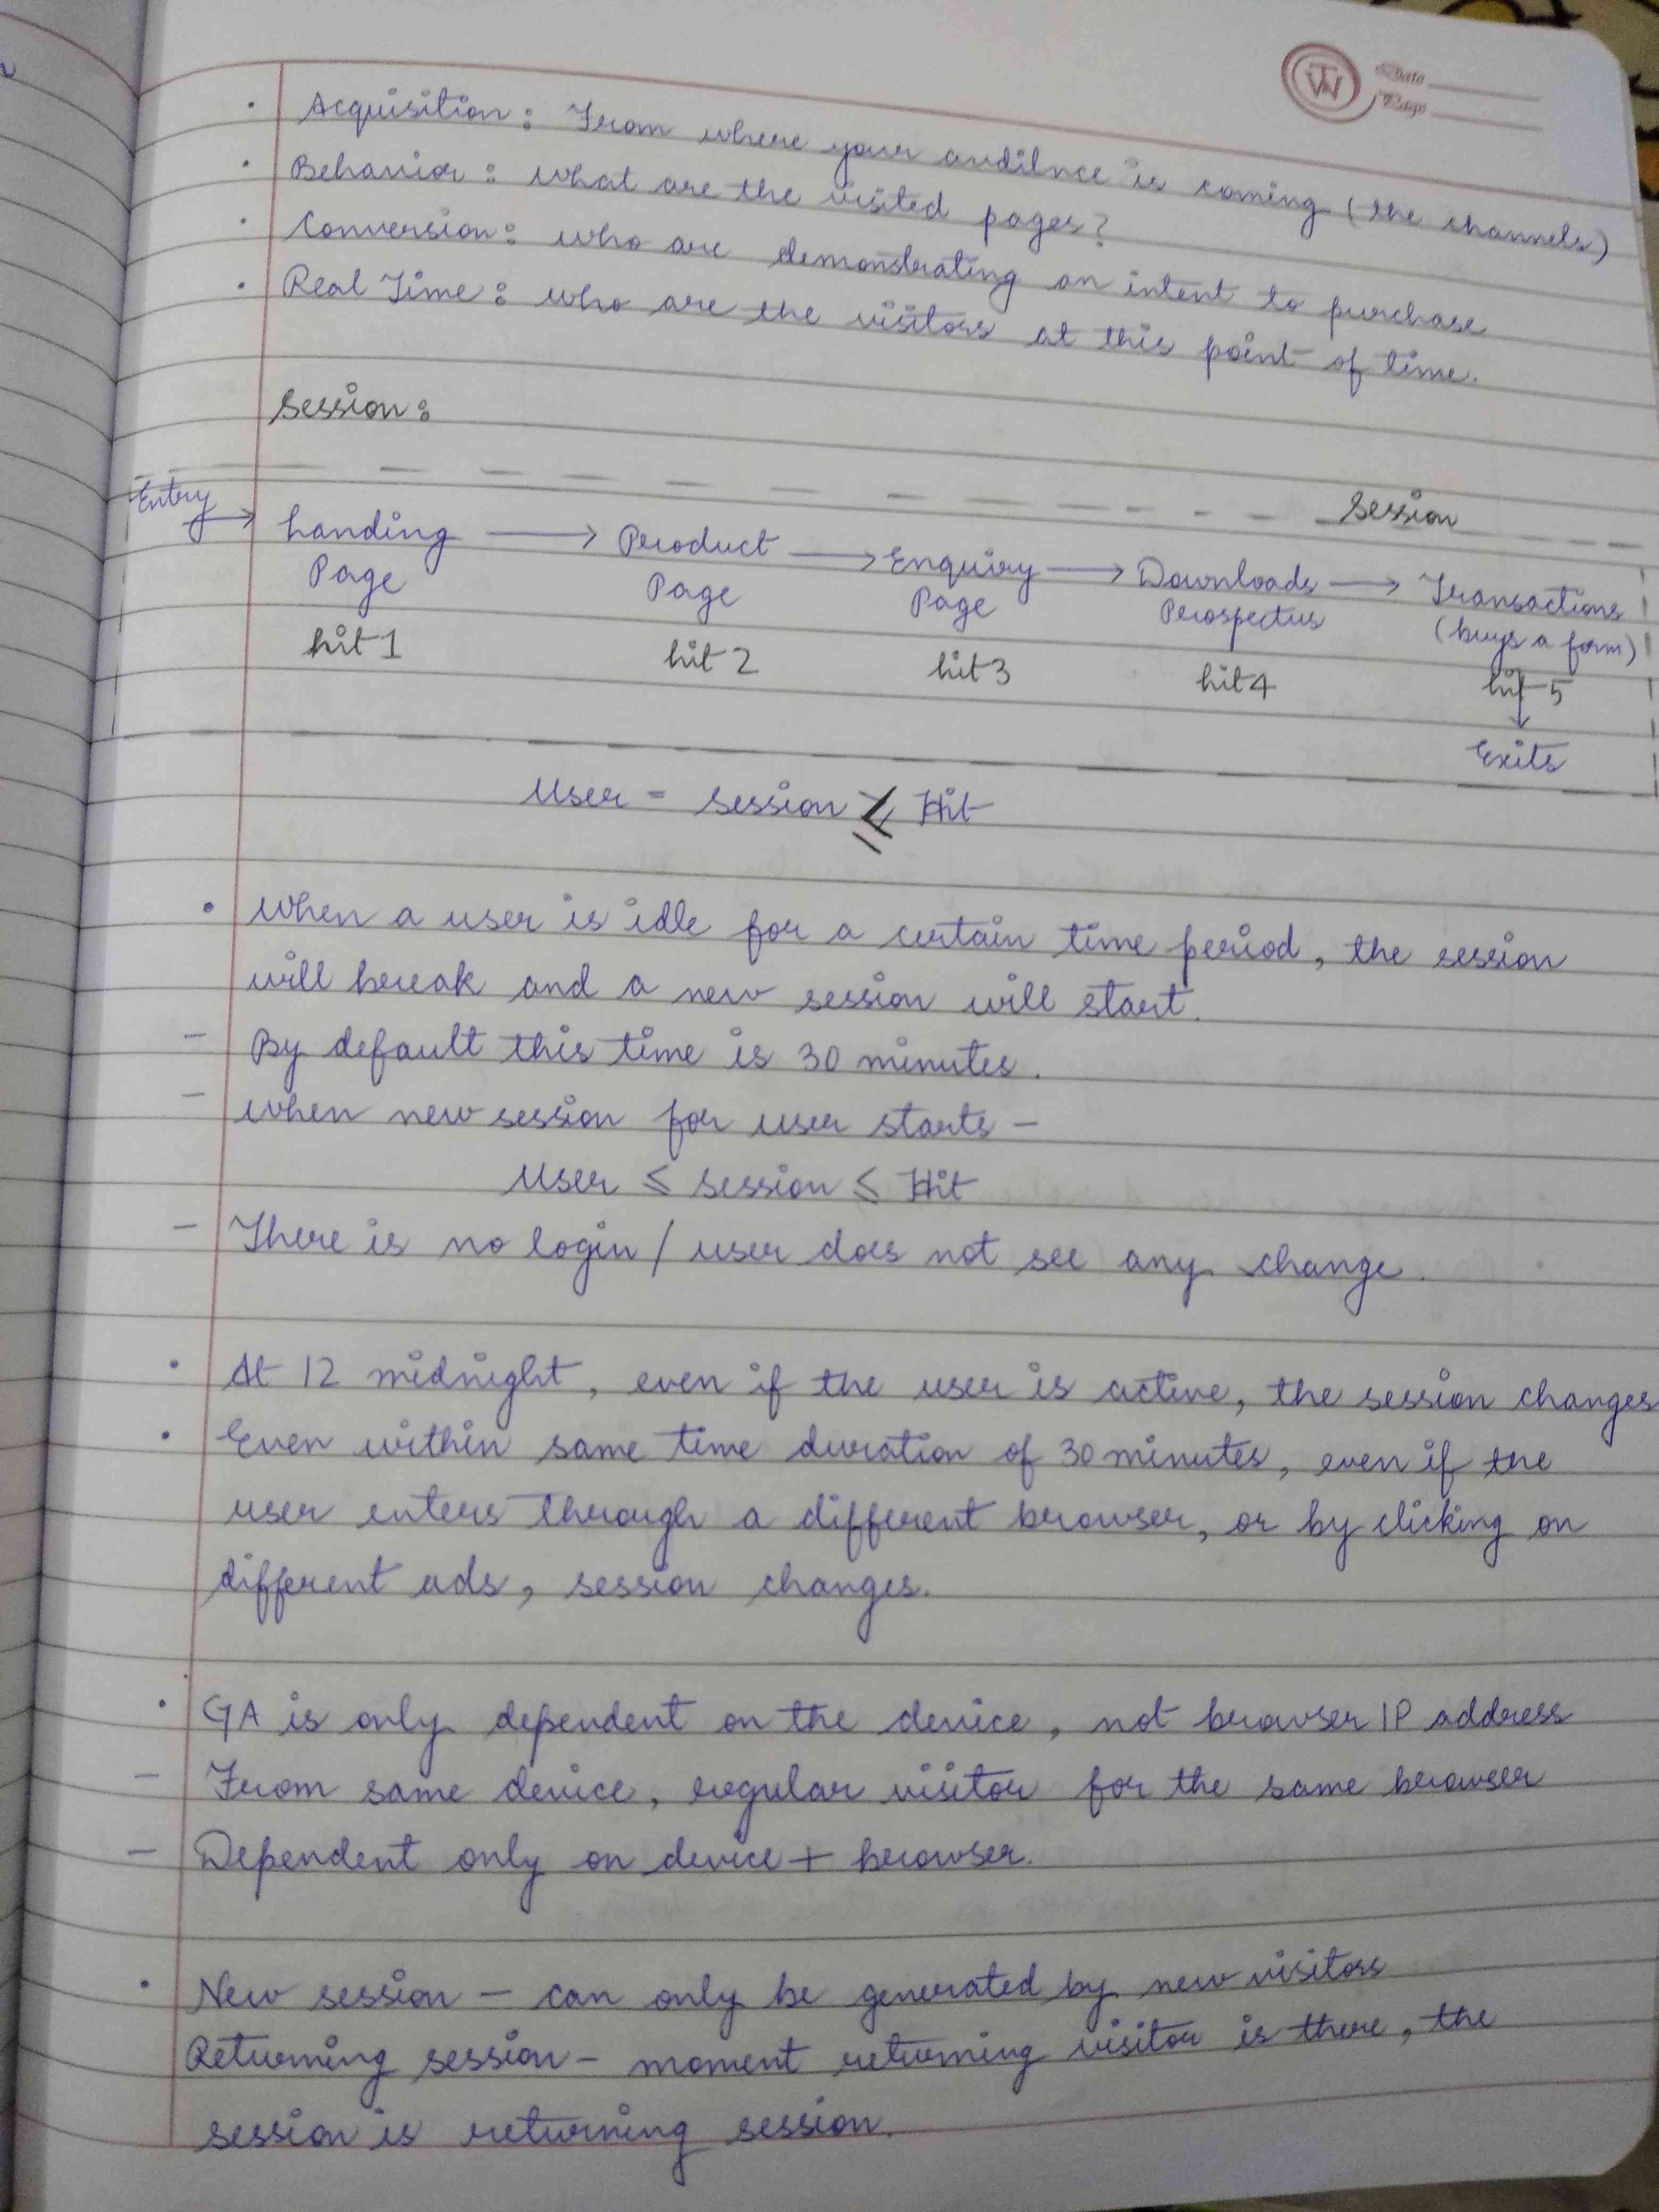 Date
Page
• Acquisition : From where your audience is coming (the channels)
• Behavior : what are the visited pages?
• Conversion : who are demonstrating an intent to purchase
• Real Time : who are the visitors at this point of time.
Session :
Session
Entry → Landing → Product → Enquiry → Downloads → Transactions
Page Page Page Prospectus (buys a form)
hit 1 hit 2 hit 3 hit 4 hit 5
Exits
User = session ≤ Hit
• When a user is idle for a certain time period, the session
will break and a new session will start.
- By default this time is 30 minutes.
- when new session for user starts -
User ≤ session ≤ Hit
- There is no login / user does not see any change.
• At 12 midnight, even if the user is active, the session changes
• Even within same time duration of 30 minutes, even if the
user enters through a different browser, or by clicking on
different ads, session changes.
• GA is only dependent on the device, not browser IP address
- From same device, regular visitor for the same browser
- Dependent only on device + browser.
• New session - can only be generated by new visitors
Returning session - moment returning visitor is there, the
session is returning session.